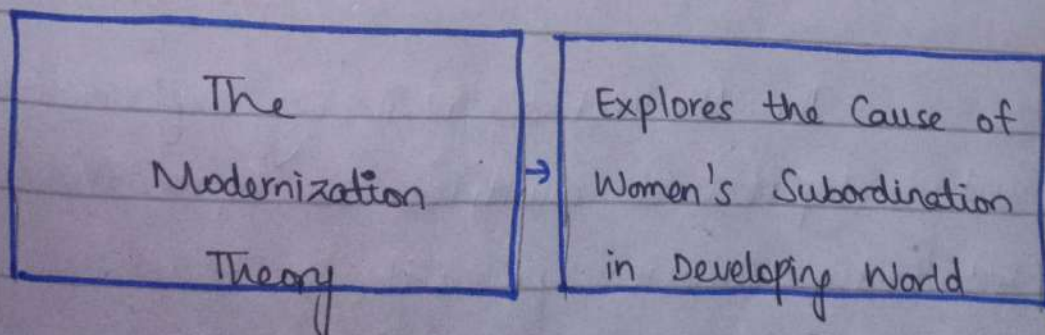 The
Modernization
Theory
→
Explores the Cause of
Women's Subordination
in Developing World